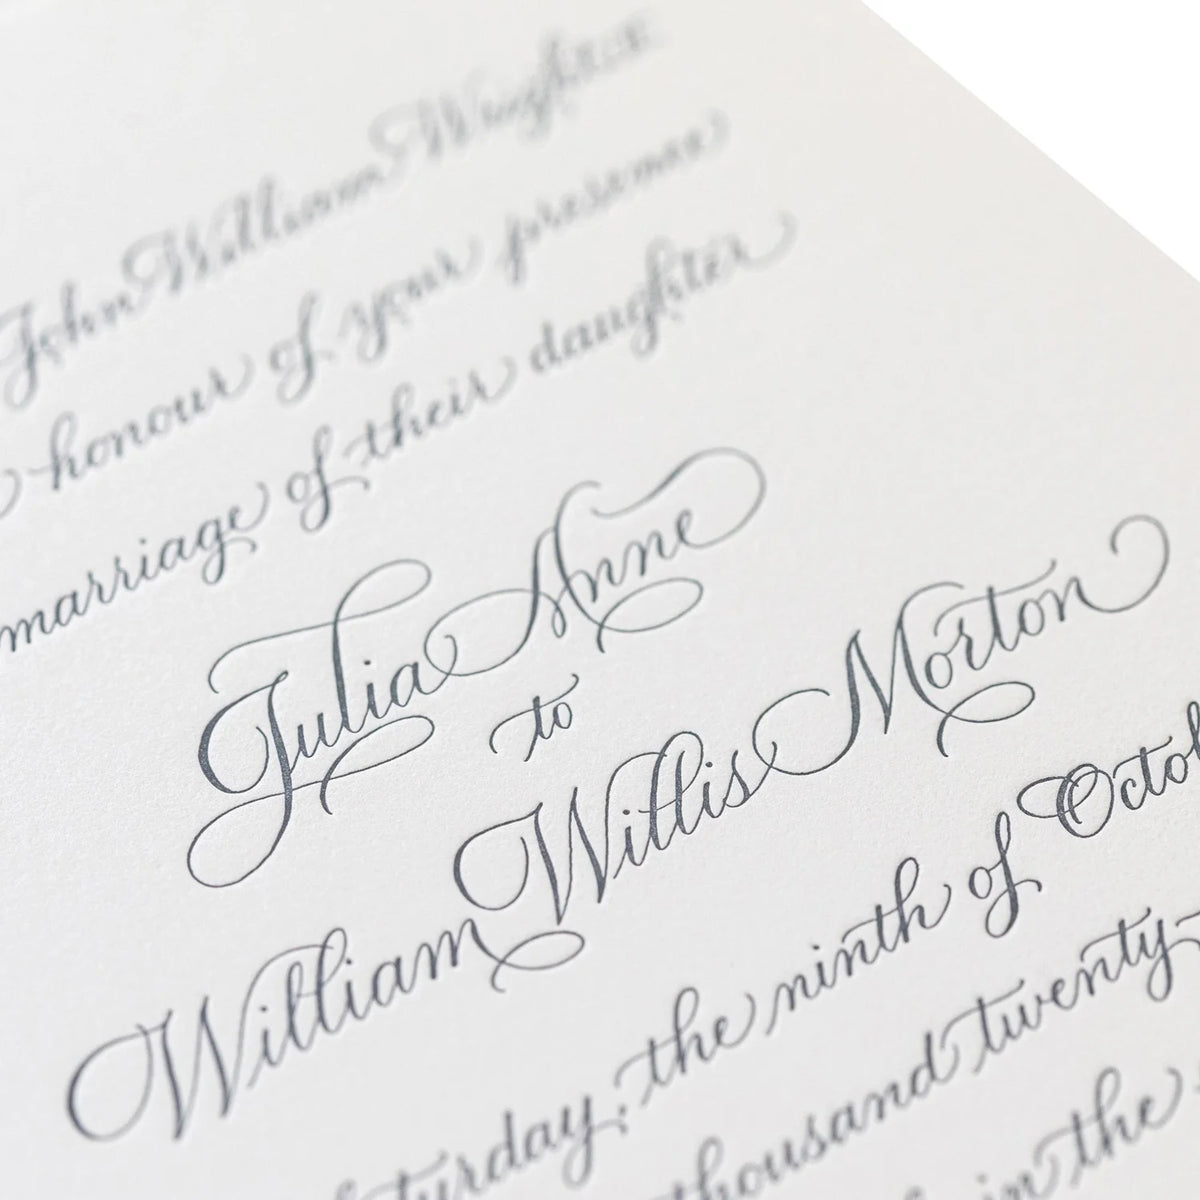 John William Wrightson
honour of your presence
marriage of their daughter
Julia Anne
to
William Willis Morton
the ninth of
thousand twenty-
in the